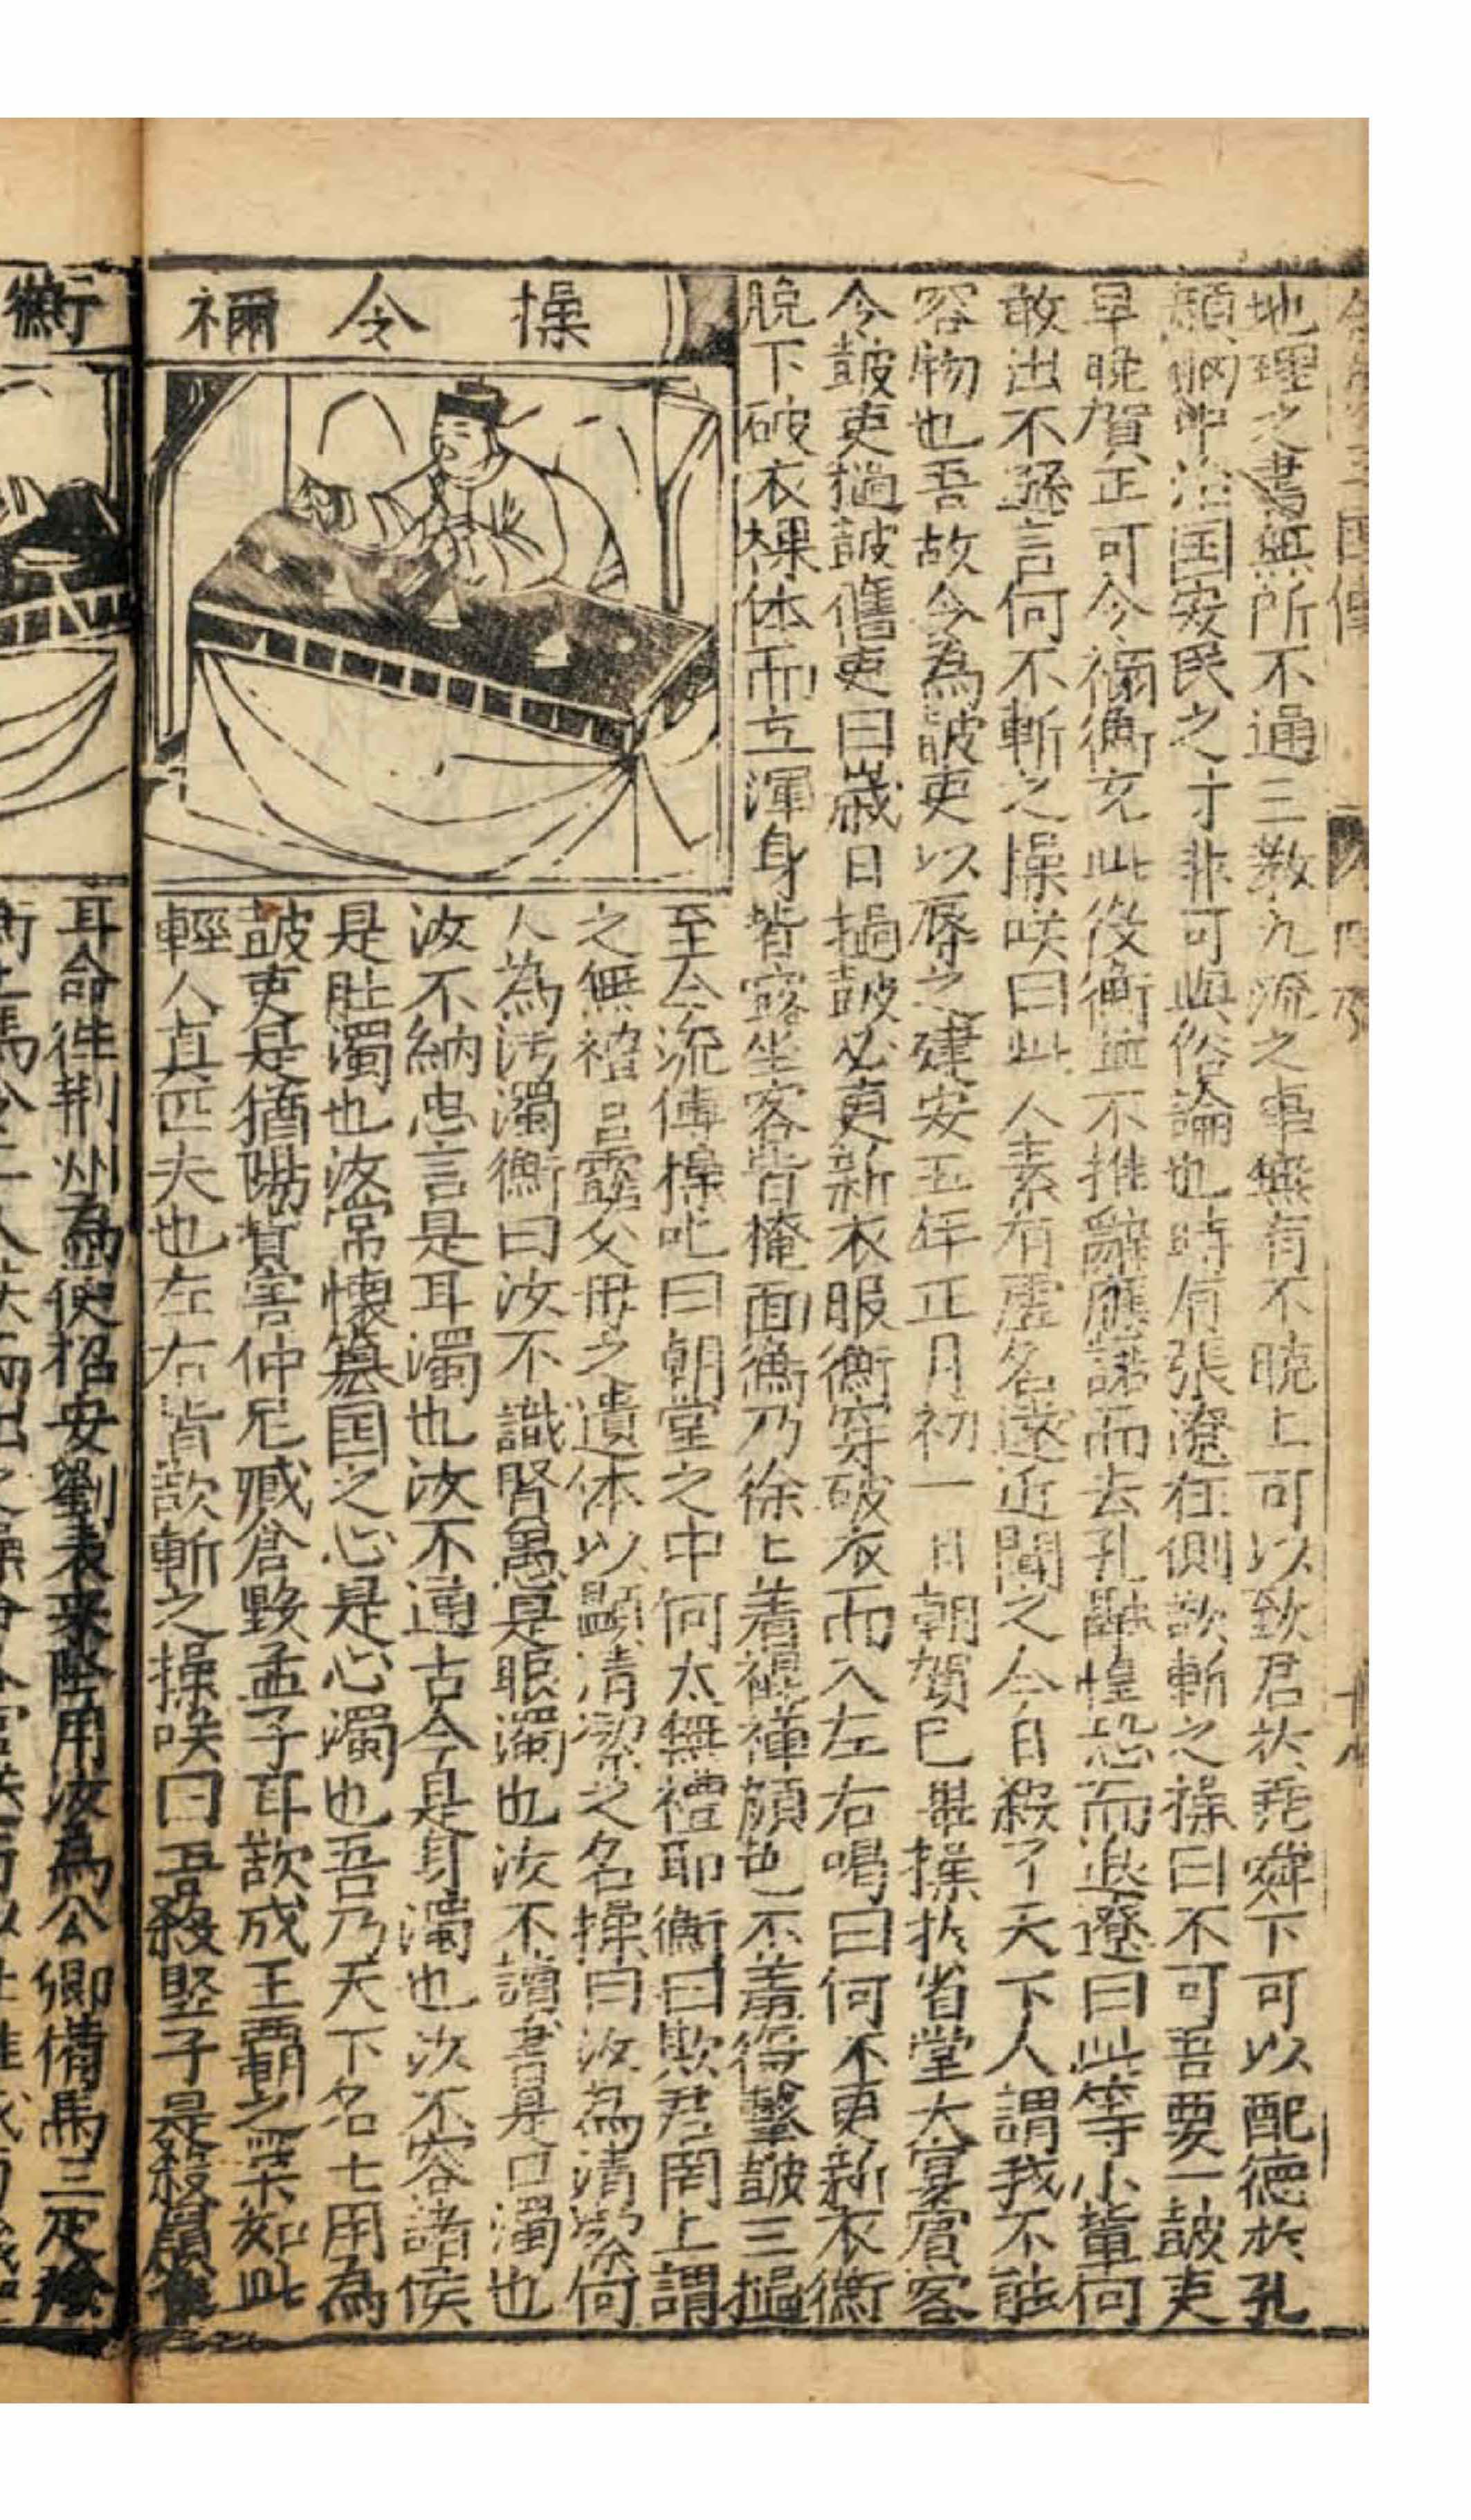 地理之書無所不通三教九流之事無有不暁上可以致君於堯舜下可以配德於孔
顔胸中治国安民之才非可與俗論也時有張遼在側欲斬之操曰不可吾要一皷吏
早晚賀正可令禰衡充此役衡並不推辭應諾而去孔融惶恐而退遼曰此等小輩何
敢出不遜言何不斬之操咲曰此人素有虛名遠近聞之今日殺了天下人謂我不能
容物也吾故令為皷吏以辱之建安五年正月初一日朝賀已畢操扵省堂大宴賔客
令皷吏撾皷舊吏曰歳日撾皷必更新衣服衡穿破衣而入左右喝曰何不更新衣衡
脫下破衣裸体而立渾身皆露坐客皆掩面衡乃徐上着褌顔色不羞復擊皷三撾
操令禰
至今流傳操叱曰朝堂之中何太無禮耶衡曰欺君罔上謂
之無禮吾露父母之遺体以顯清潔之名操曰汝為清潔何
人為污濁衡曰汝不識賢愚是眼濁也汝不讀書是口濁也
汝不納忠言是耳濁也汝不通古今是身濁也汝不容諸侯
是肚濁也汝常懷篡国之心是心濁也吾乃天下名士用為
皷吏是猶陽貨害仲尼臧倉毀孟子耳欲成王覇之業如此
輕人真匹夫也左右皆欲斬之操咲曰吾殺竪子是殺
衡
耳命徃荆州為使招安劉表来降用汝為公卿備馬三疋